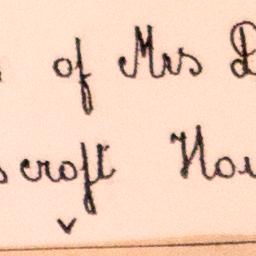 of Mrs D
scroft Hou